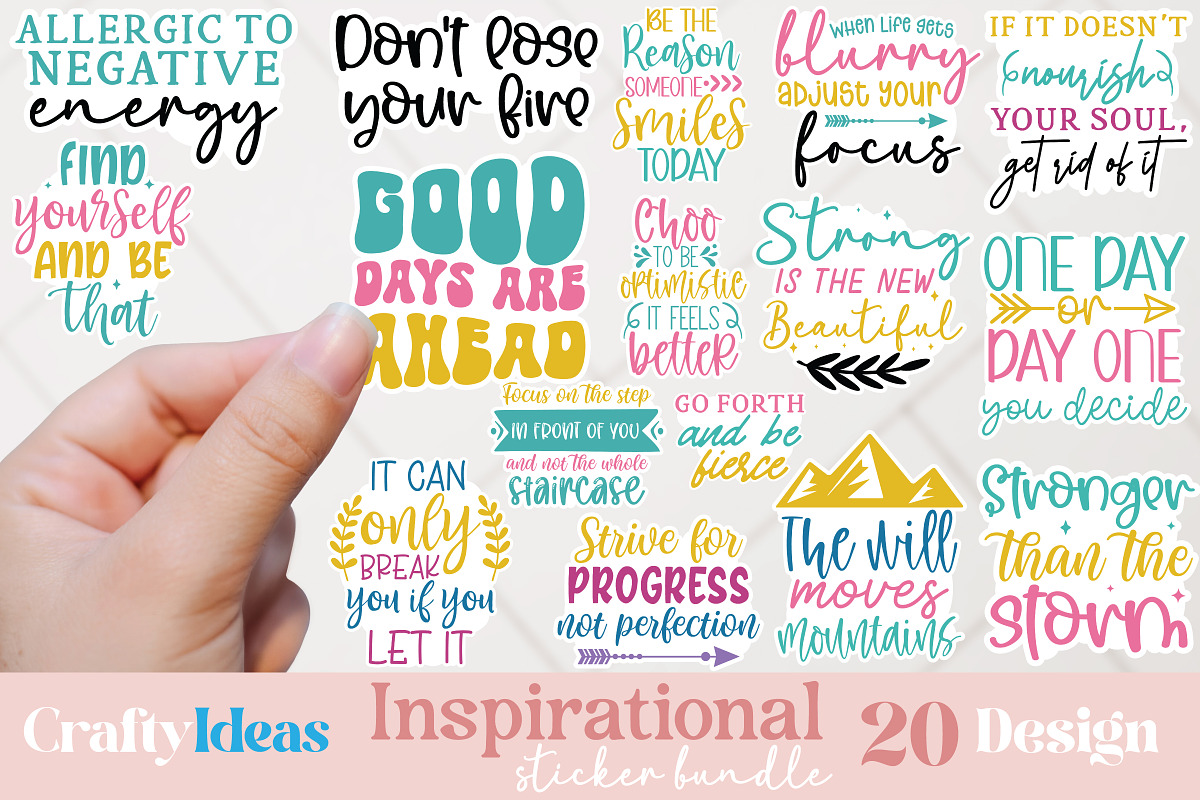 ALLERGIC TO
NEGATIVE
energy
Don't lose
your fire
BE THE
Reason
SOMEONE
Smiles
TODAY
WHEN LIFE GETS
blurry
ADJUST YOUR
focus
IF IT DOESN'T
nourish
YOUR SOUL,
get rid of it
FIND
yourself
AND BE
that
GOOD
DAYS ARE
AHEAD
Choo
TO BE
optimistic
IT FEELS
better
Strong
IS THE NEW
Beautiful
ONE DAY
or
DAY ONE
you decide
Focus on the step
IN FRONT OF YOU
and not the whole
staircase
GO FORTH
and be
fierce
IT CAN
only
BREAK
you if you
LET IT
Strive for
PROGRESS
not perfection
The will
moves
mountains
Stronger
than the
storm
CraftyIdeas
Inspirational
sticker bundle
20 Design